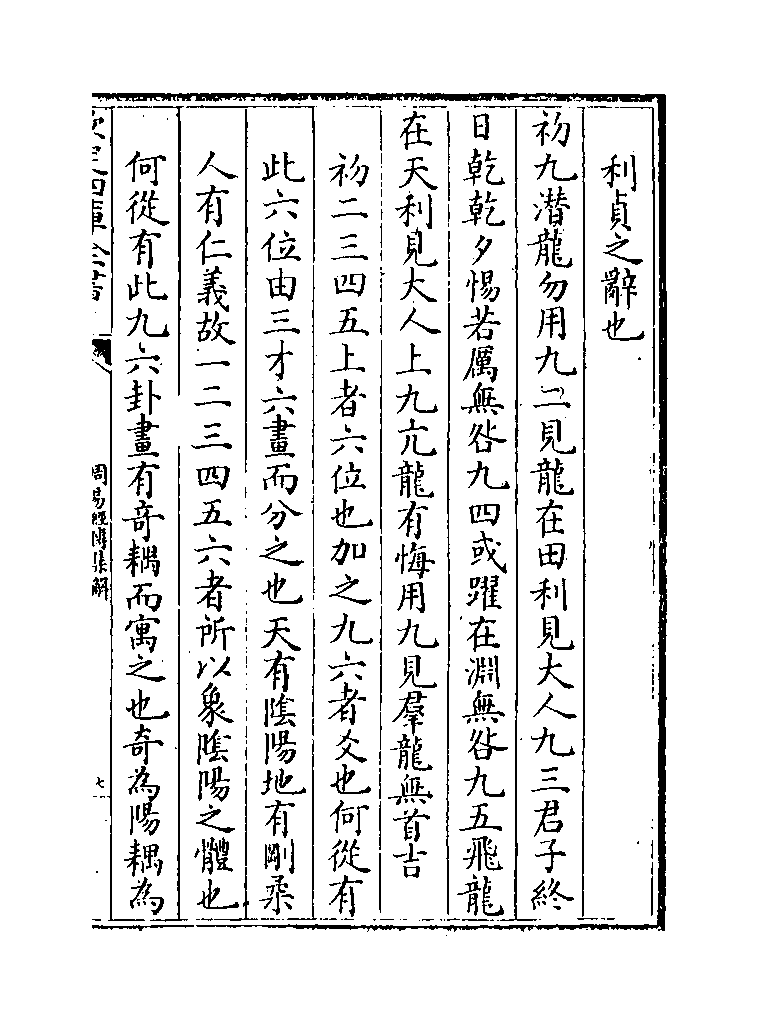 利貞之辭也
初九潛龍勿用九二見龍在田利見大人九三君子終
日乾乾夕惕若厲無咎九四或躍在淵無咎九五飛龍
在天利見大人上九亢龍有悔用九見羣龍無首吉
初二三四五上者六位也加之九六者爻也何從有
此六位由三才六畫而分之也天有陰陽地有剛柔
人有仁義故一二三四五六者所以象陰陽之體也
何從有此九六卦畫有奇耦而寓之也奇為陽耦為
欽定四庫全書
周易經傳集解
七